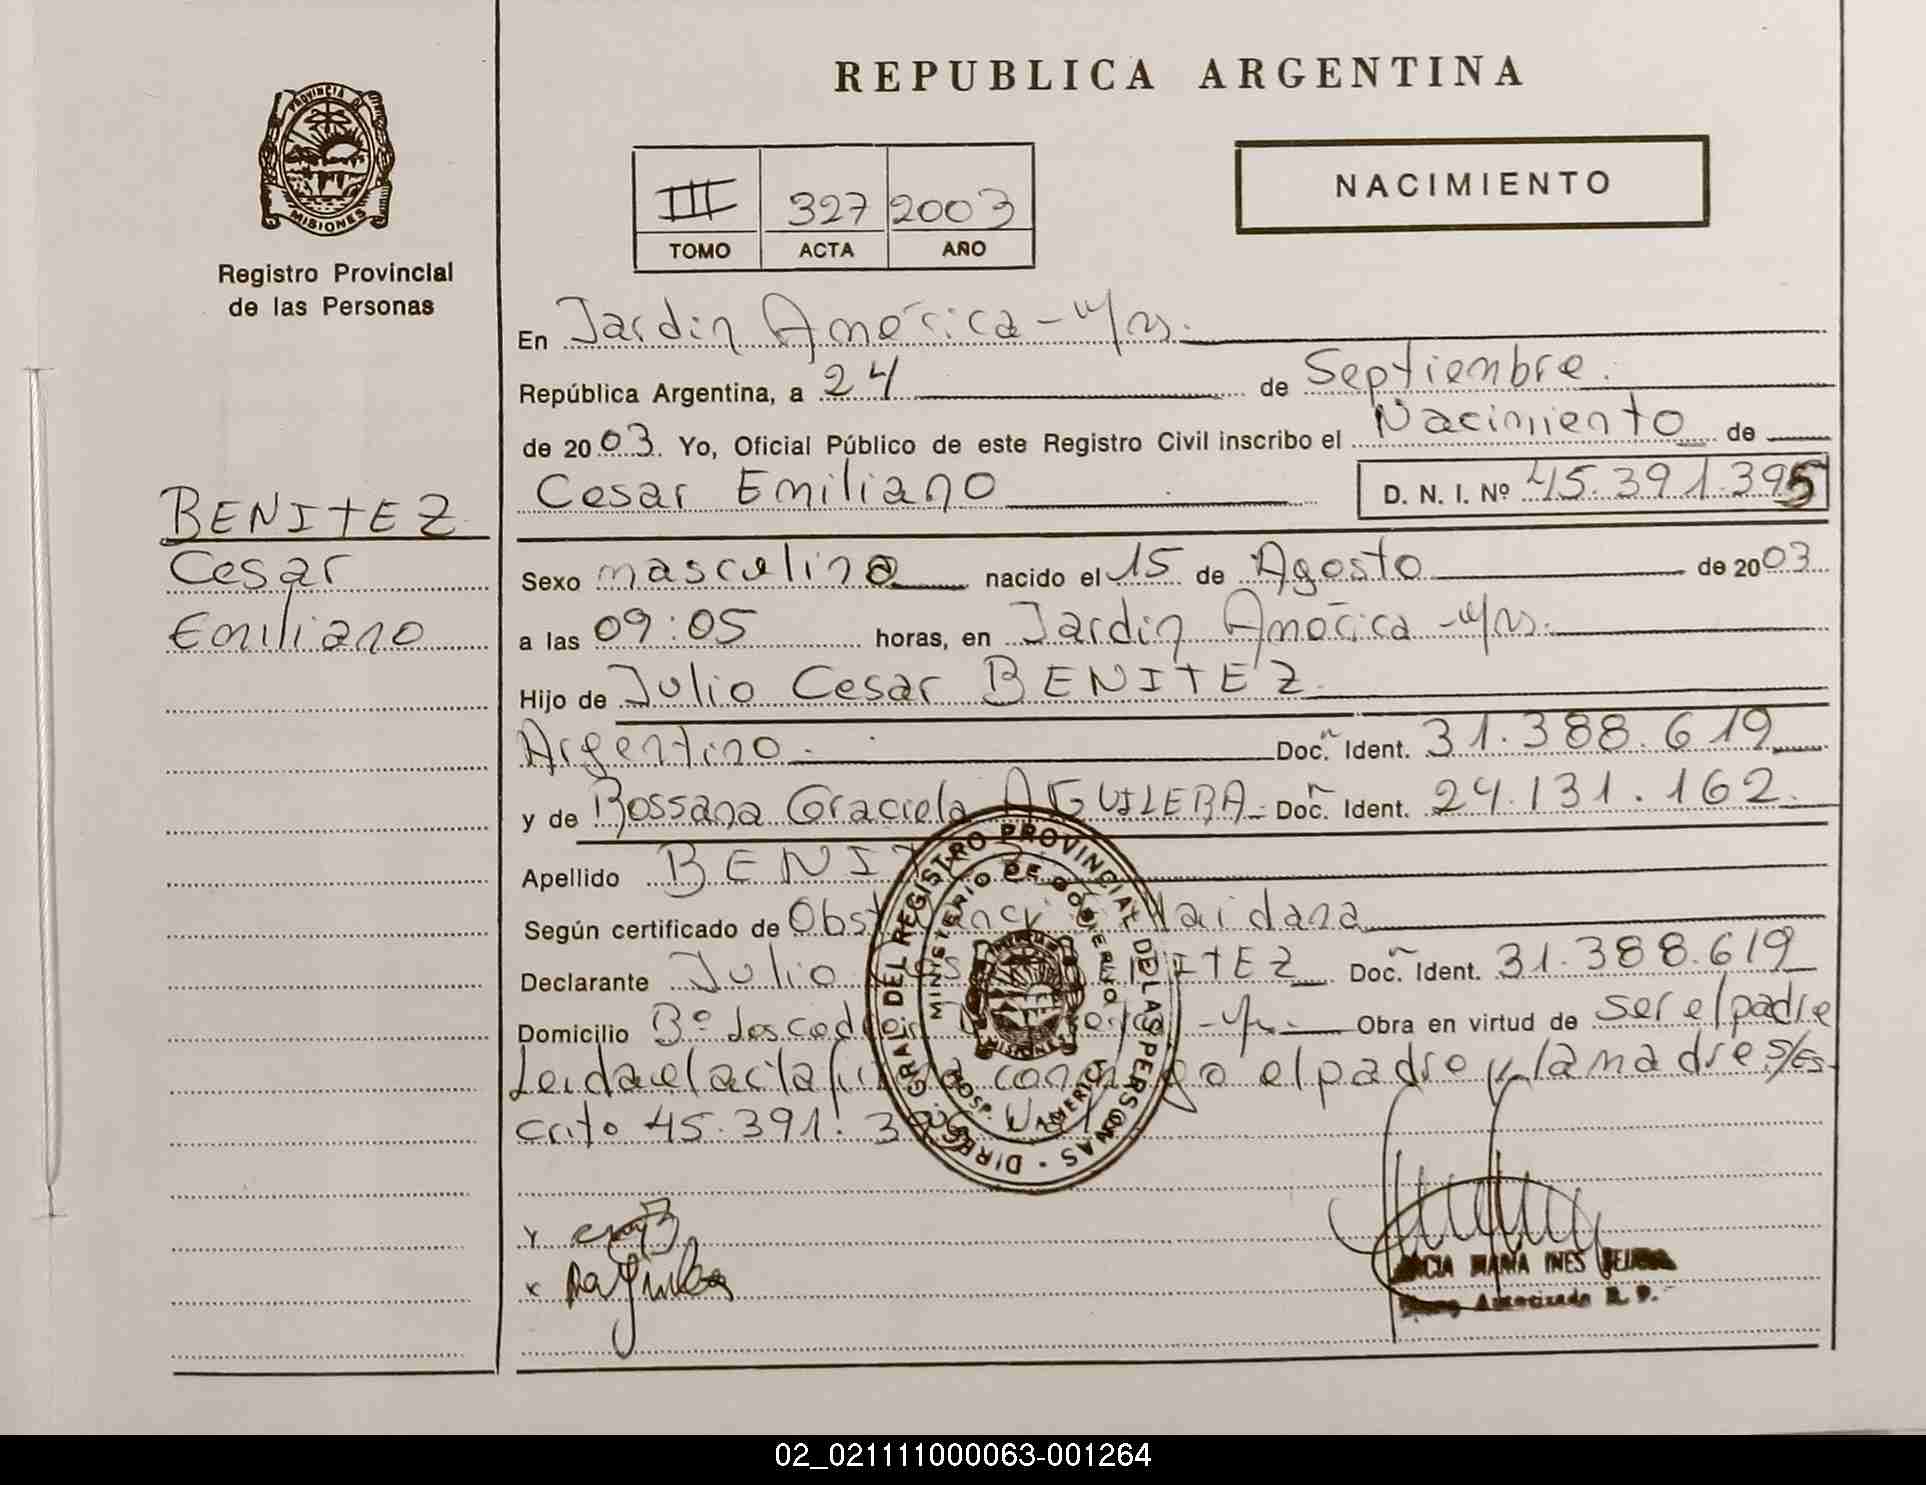 REPUBLICA ARGENTINA
PROVINCIA DE
MISIONES
Registro Provincial
de las Personas
III 327 2003
TOMO ACTA AÑO
NACIMIENTO
BENITEZ
Cesar
Emiliano
En Jardin América - Mns.
República Argentina, a 24 de Septiembre.
de 2003. Yo, Oficial Público de este Registro Civil inscribo el Nacimiento de
Cesar Emiliano D. N. I. Nº 45.391.395
Sexo masculino nacido el 15 de Agosto de 2003
a las 09:05 horas, en Jardin América - Mns.
Hijo de Julio Cesar BENITEZ
Argentino. Doc. Ident. 31.388.619
y de Rossana Graciela AGUILERA - Doc. Ident. 24.131.162.
Apellido BENI
Según certificado de Maidana
Declarante Julio Doc. Ident. 31.388.619
Domicilio Bº Los Obra en virtud de ser el padre
Leida el acta el padre y la madre s/Es-
crito 45.391.3
DIREC. GRAL. DEL REGISTRO PROVINCIAL DE LAS PERSONAS
MINISTERIO DE GOBIERNO
MISIONES
HOSP. AMERICA
MARIA INES
Autorizado R. P.
02_021111000063-001264